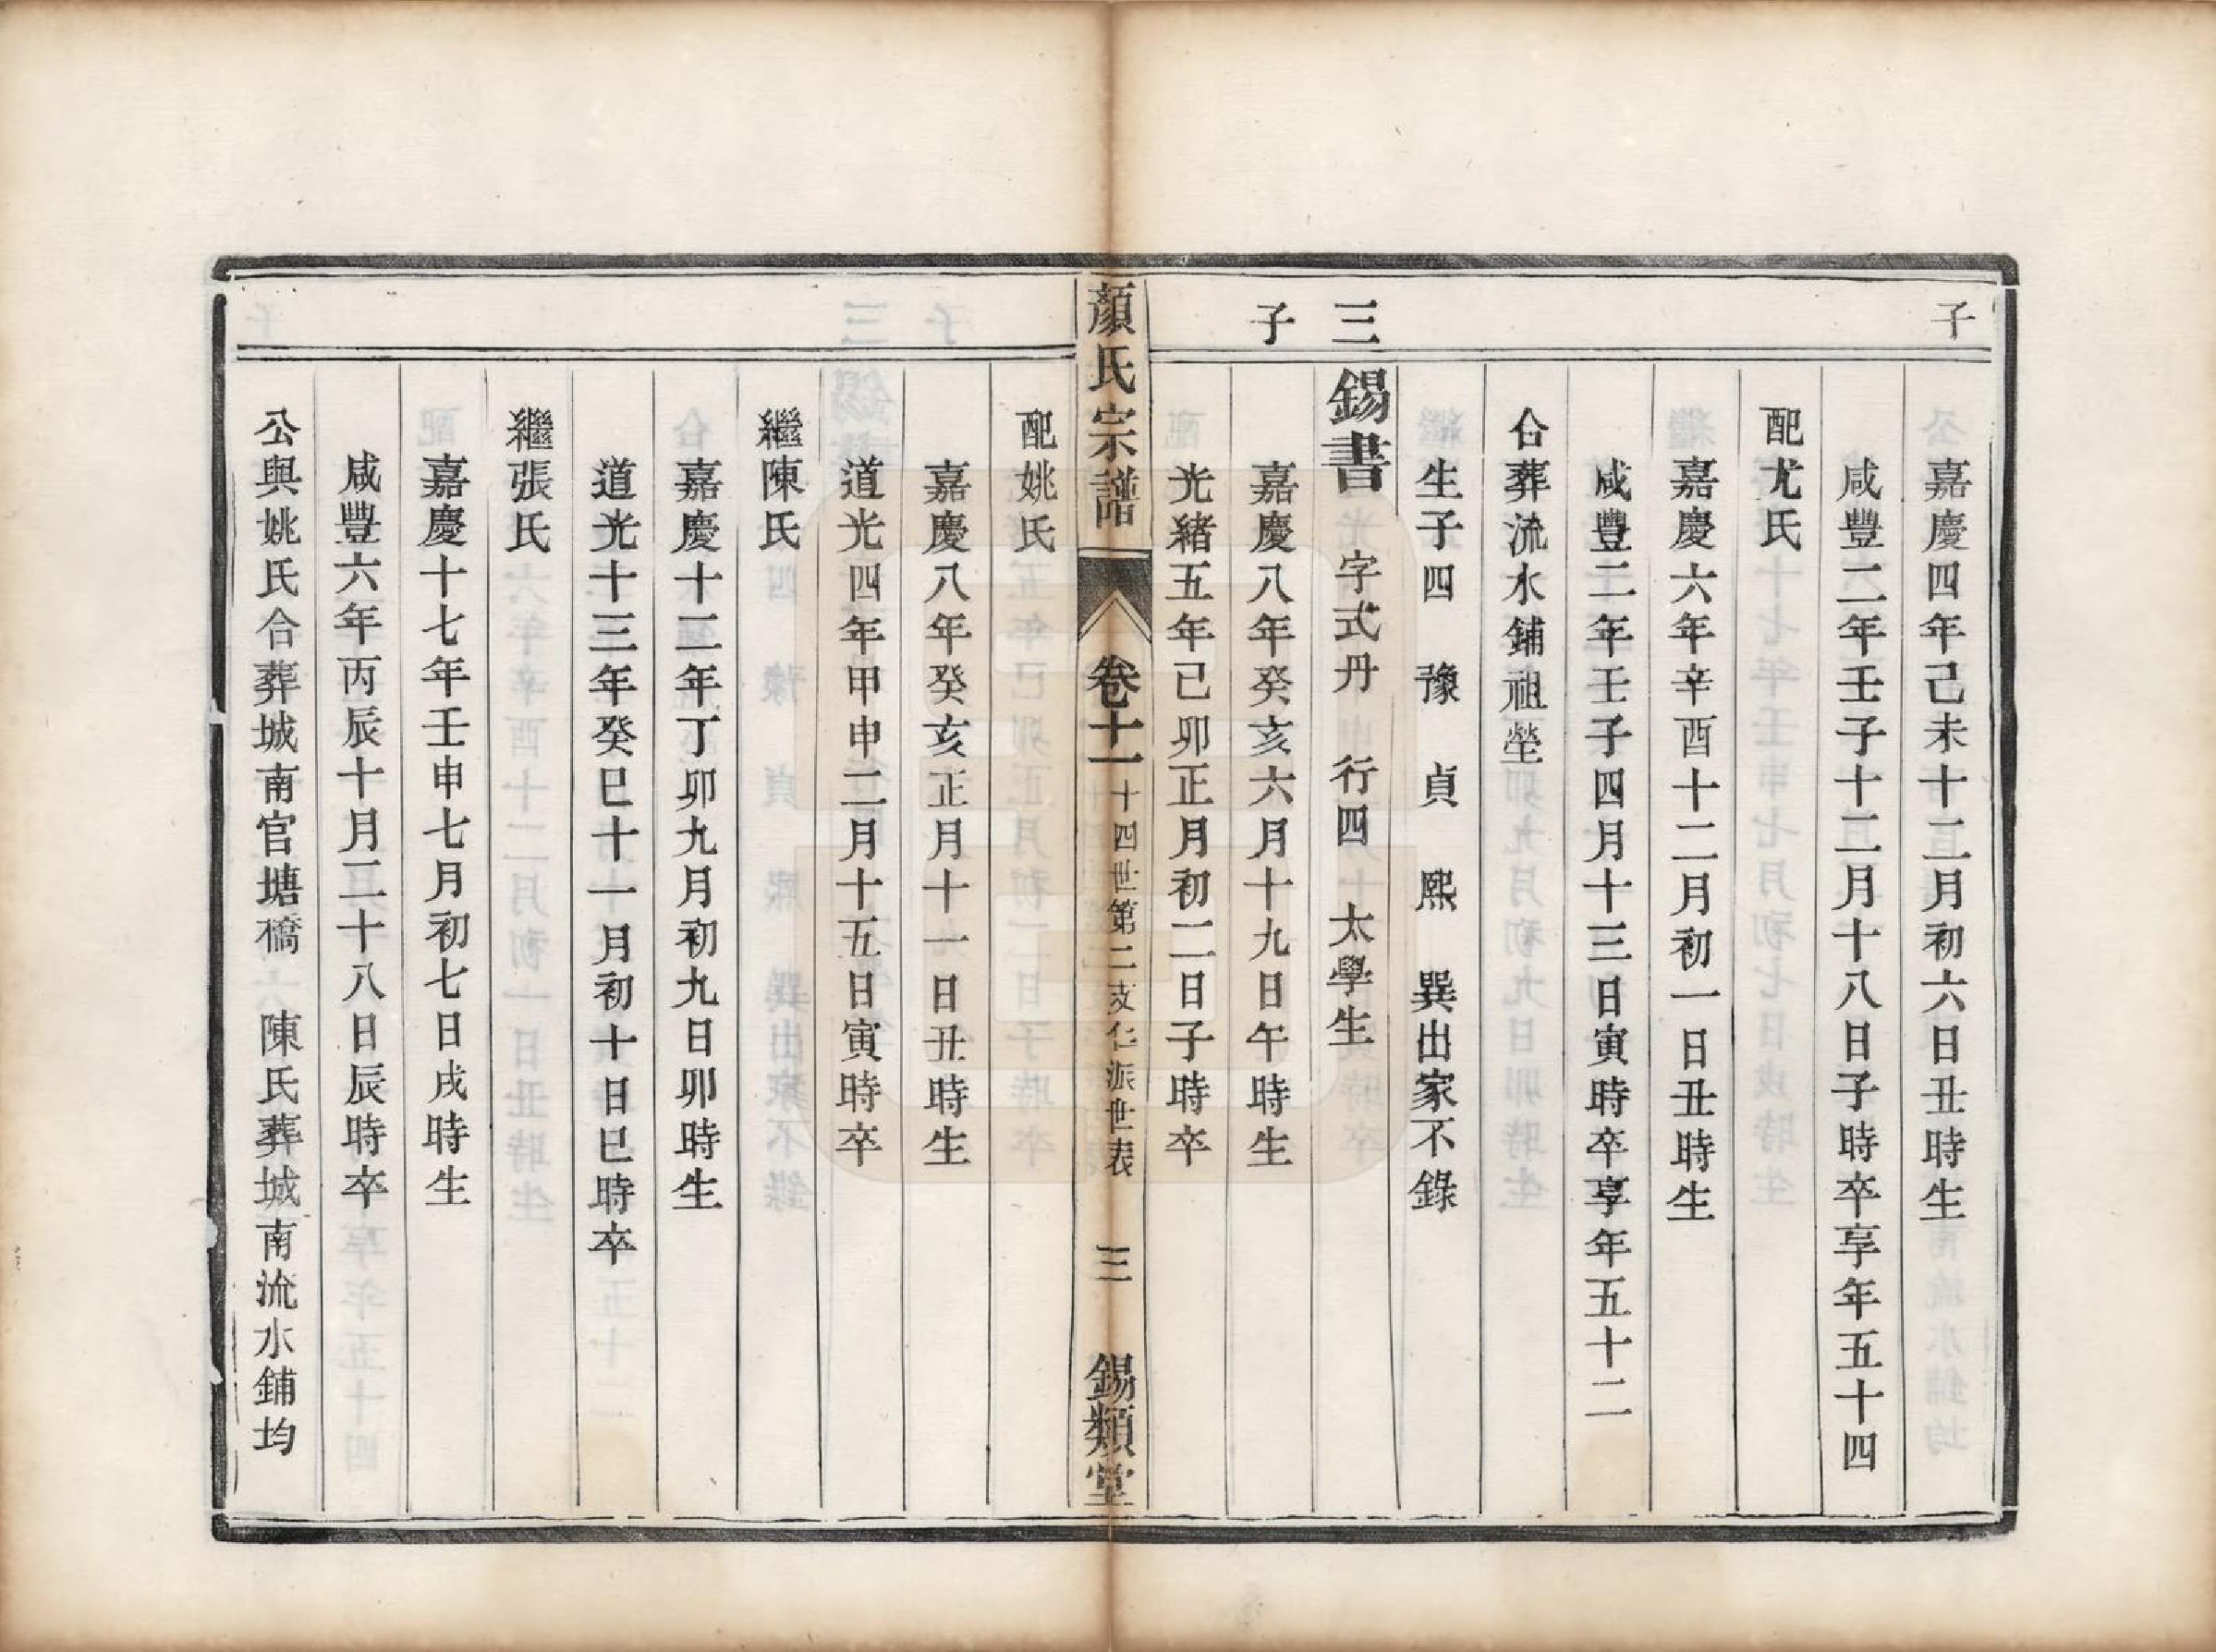 子
嘉慶四年己未十二月初六日丑時生
咸豐二年壬子十二月十八日子時卒享年五十四
配尤氏
嘉慶六年辛酉十二月初一日丑時生
咸豐二年壬子四月十三日寅時卒享年五十二
合葬流水鋪祖塋
生子四 豫 貞 熙 巽出家不錄
三
錫書 字式丹 行四 太學生
子
嘉慶八年癸亥六月十九日午時生
光緒五年己卯正月初二日子時卒
顏氏宗譜 卷十一 十四世第二支仁派世表 三 錫類堂
配姚氏
嘉慶八年癸亥正月十一日丑時生
道光四年甲申二月十五日寅時卒
繼陳氏
嘉慶十二年丁卯九月初九日卯時生
道光十三年癸巳十一月初十日巳時卒
繼張氏
嘉慶十七年壬申七月初七日戌時生
咸豐六年丙辰十月二十八日辰時卒
公與姚氏合葬城南官塘橋 陳氏葬城南流水鋪均